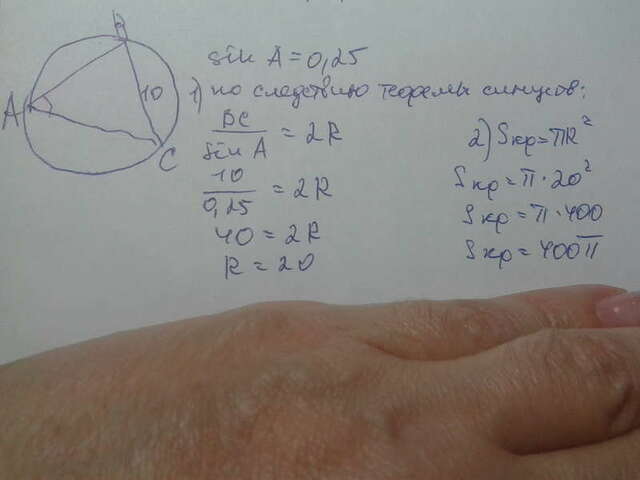 B
A
10
C
sin A = 0,25
1) по следствию теоремы синусов:
BC / sin A = 2R
10 / 0,25 = 2R
40 = 2R
R = 20
2) Sкр = πR²
Sкр = π · 20²
Sкр = π · 400
Sкр = 400π